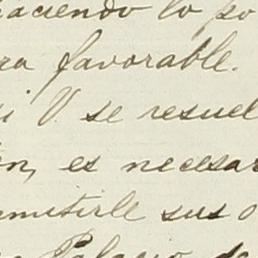 haciendo lo po
ra favorable.
si V. se resuel
en, es necesar
mitirle sus o
Palacio de